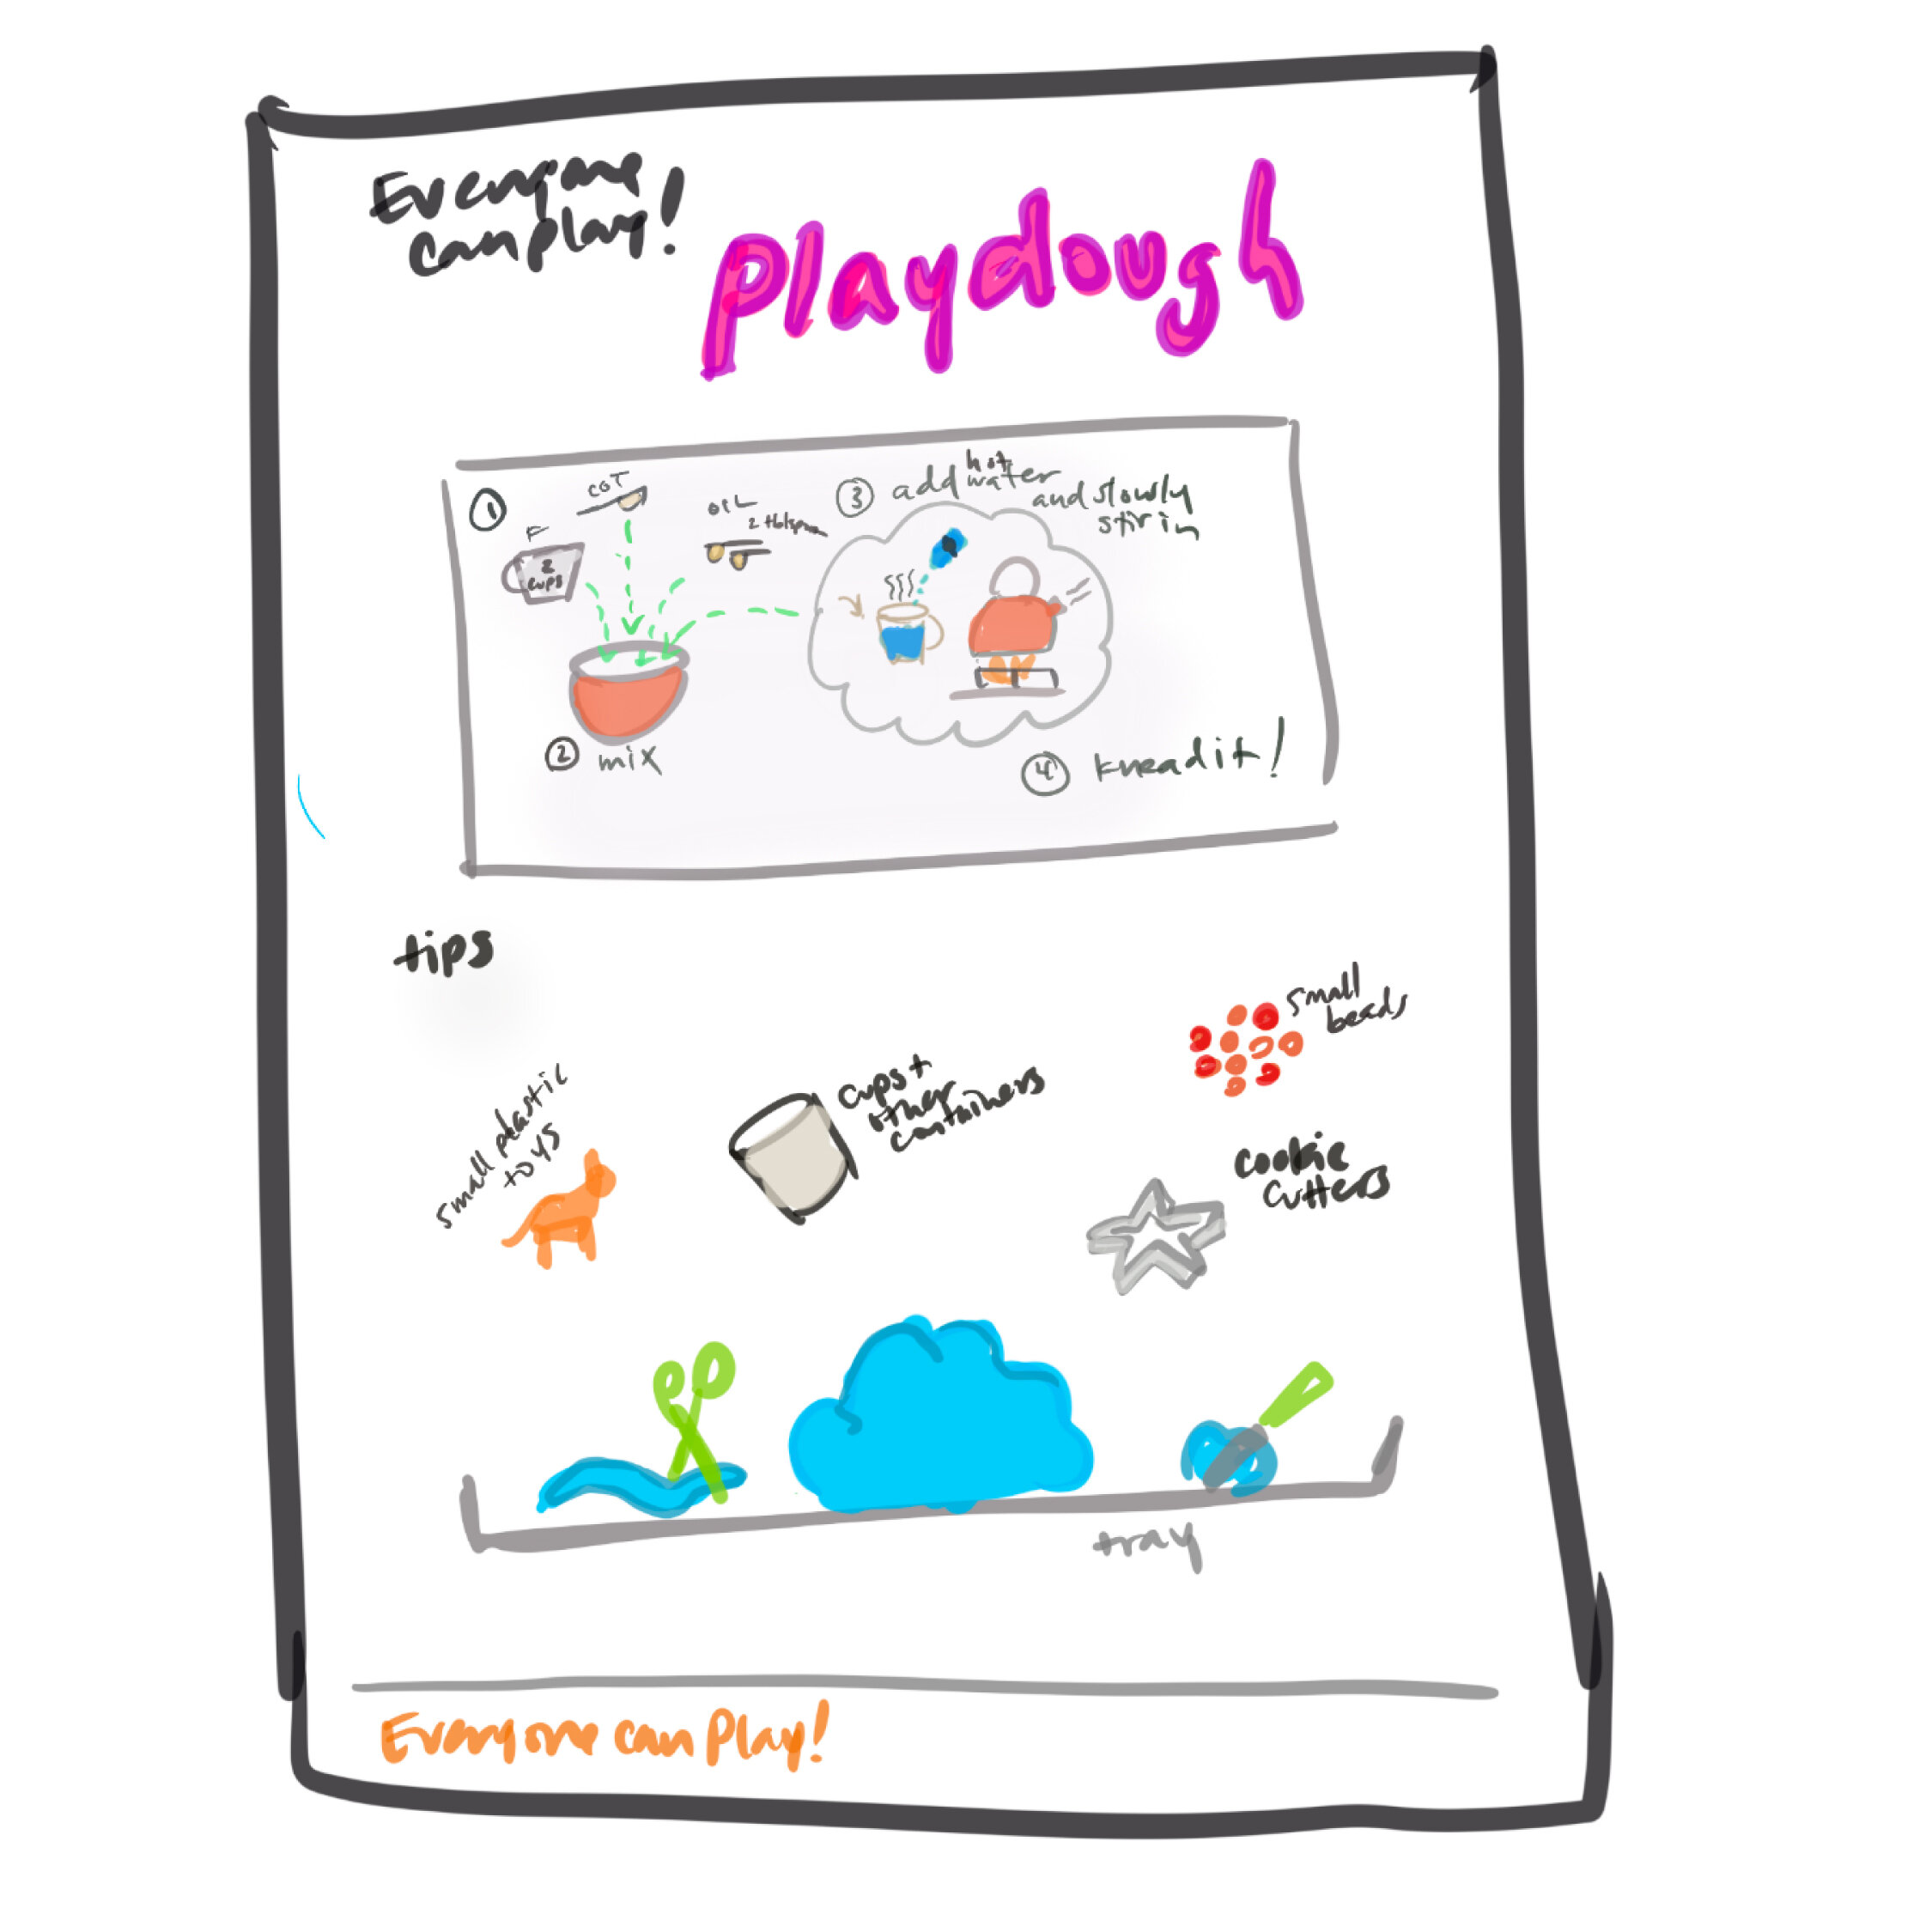 Everyone
can play!
playdough
1
COT
F
2
cups
OIL
2 tblspn
2 mix
3 add hot water and slowly
stir in
4 knead it!
tips
small plastic
toys
cups +
other
containers
small
beads
cookie
cutters
tray
Everyone can play!